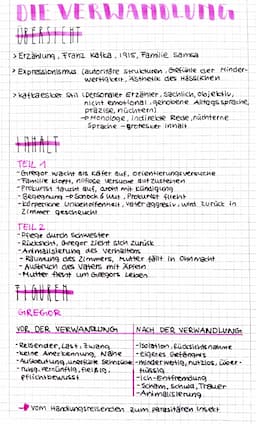 DIE VERWANDLUNG
ÜBERSICHT
> Erzählung, Franz Kafka, 1915, Familie Samsa
> Expressionismus (autoritäre Strukturen, Gefühle der Minder-
wertigkeit, Ästhetik des Hässlichen
> Kafkaesker Stil (personaler Erzähler, sachlich, objektiv,
nicht emotional, gehobene Alltagssprache,
präzise, nüchtern)
→ Monologe, indirekte Rede, nüchterne
Sprache - grotesker Inhalt
INHALT
TEIL 1
- Gregor wacht als Käfer auf, Orientierungsversuche
- Familie klopft, hilflose Versuche aufzustehen
- Prokurist taucht auf, droht mit Kündigung
- Begegnung → Schock & Prokurist flieht
- körperliche Unbeholfenheit, Vater aggressiv, wird zurück in
Zimmer gescheucht
TEIL 2
- Pflege durch Schwester
- Rücksicht, Gregor zieht sich zurück
- Animalisierung des Verhaltens
- Räumung des Zimmers, Mutter fällt in Ohnmacht
- Ausbruch des Vaters mit Äpfeln
- Mutter fleht um Gregors Leben
FIGUREN
GREGOR
VOR DER VERWANDLUNG
- Reisender, Last, Zwang
- keine Anerkennung, Nähe
- Ausbeutung, unerfüllte
- ruhig, vernünftig, fleißig,
pflichtbewusst
NACH DER VERWANDLUNG
- Isolation, Rücksichtsnahme
- eigenes Gefängnis
- minderwertig, nutzlos, über-
flüssig
- Ich-Entfremdung
- Scham, Schuld, Trauer
- Animalisierung
→ vom Handlungsreisenden zum parasitären Insekt